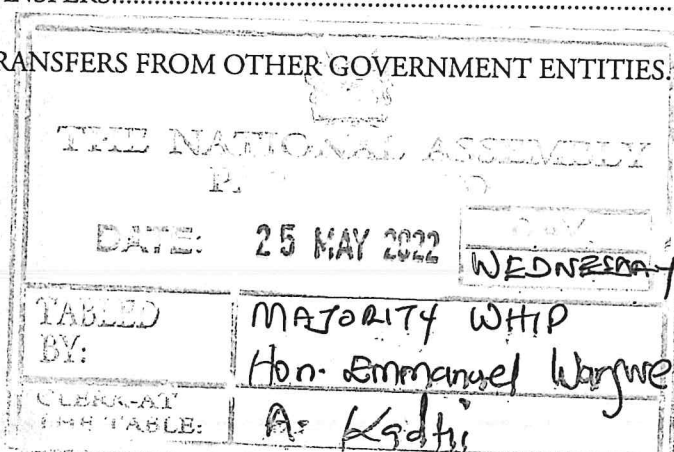 RANSFERS FROM OTHER GOVERNMENT ENTITIES.
THE NATIONAL ASSEMBLY
DATE: 25 MAY 2022 DAY
WEDNESDAY
TABLED BY: MAJORITY WHIP
Hon. Emmanuel Wangwe
CLERK-AT THE-TABLE: A. Kadhi